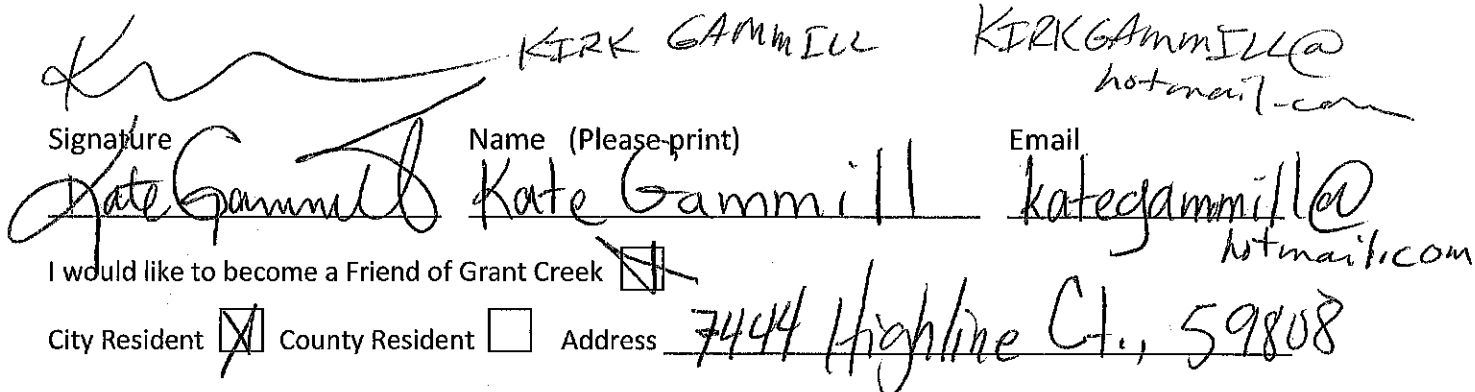 KIRK GAMMILL KIRKGAMMILL@
hotmail.com
Signature Name (Please print) Email
Kate Gammill Kate Gammill kategammill@
hotmail.com
I would like to become a Friend of Grant Creek
City Resident County Resident Address 7444 Highline Ct., 59808